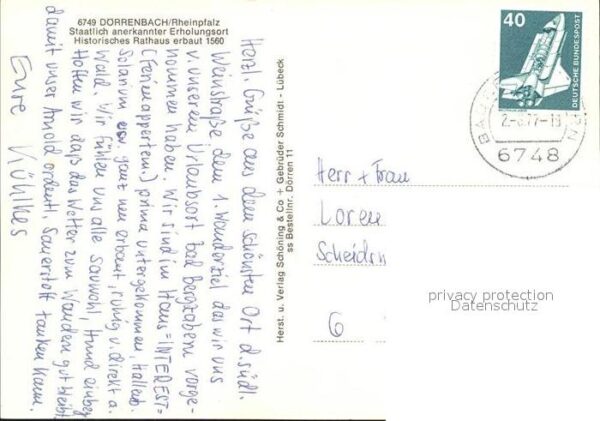 6749 DÖRRENBACH/Rheinpfalz
Staatlich anerkannter Erholungsort
Historisches Rathaus erbaut 1560
Herzl. Grüße aus dem schönsten Ort d. südl.
Weinstraße dem 1. Wanderziel das wir uns
v. unserem Urlaubsort Bad Bergzabern vorge-
nommen haben. Wir sind im Haus =INTEREST=
(Ferienappartem.) prima untergekommen, Hallenb.
Solarium usw. ganz neu erbaut, ruhig u. direkt a.
Wald. Wir fühlen uns alle sauwohl, Hund einbegr
Hoffen wir daß das Wetter zum Wandern gut bleibt
damit unser Arnold ordentl. Sauerstoff tanken kann.
Eure Kühlkes
Herst. u. Verlag Schöning & Co + Gebrüder Schmidt - Lübeck
ss Bestellnr. Dörren 11
40
DEUTSCHE BUNDESPOST
2.-8.77-18
6748
Herr + Frau
Loren
Scheidn
6
privacy protection
Datenschutz